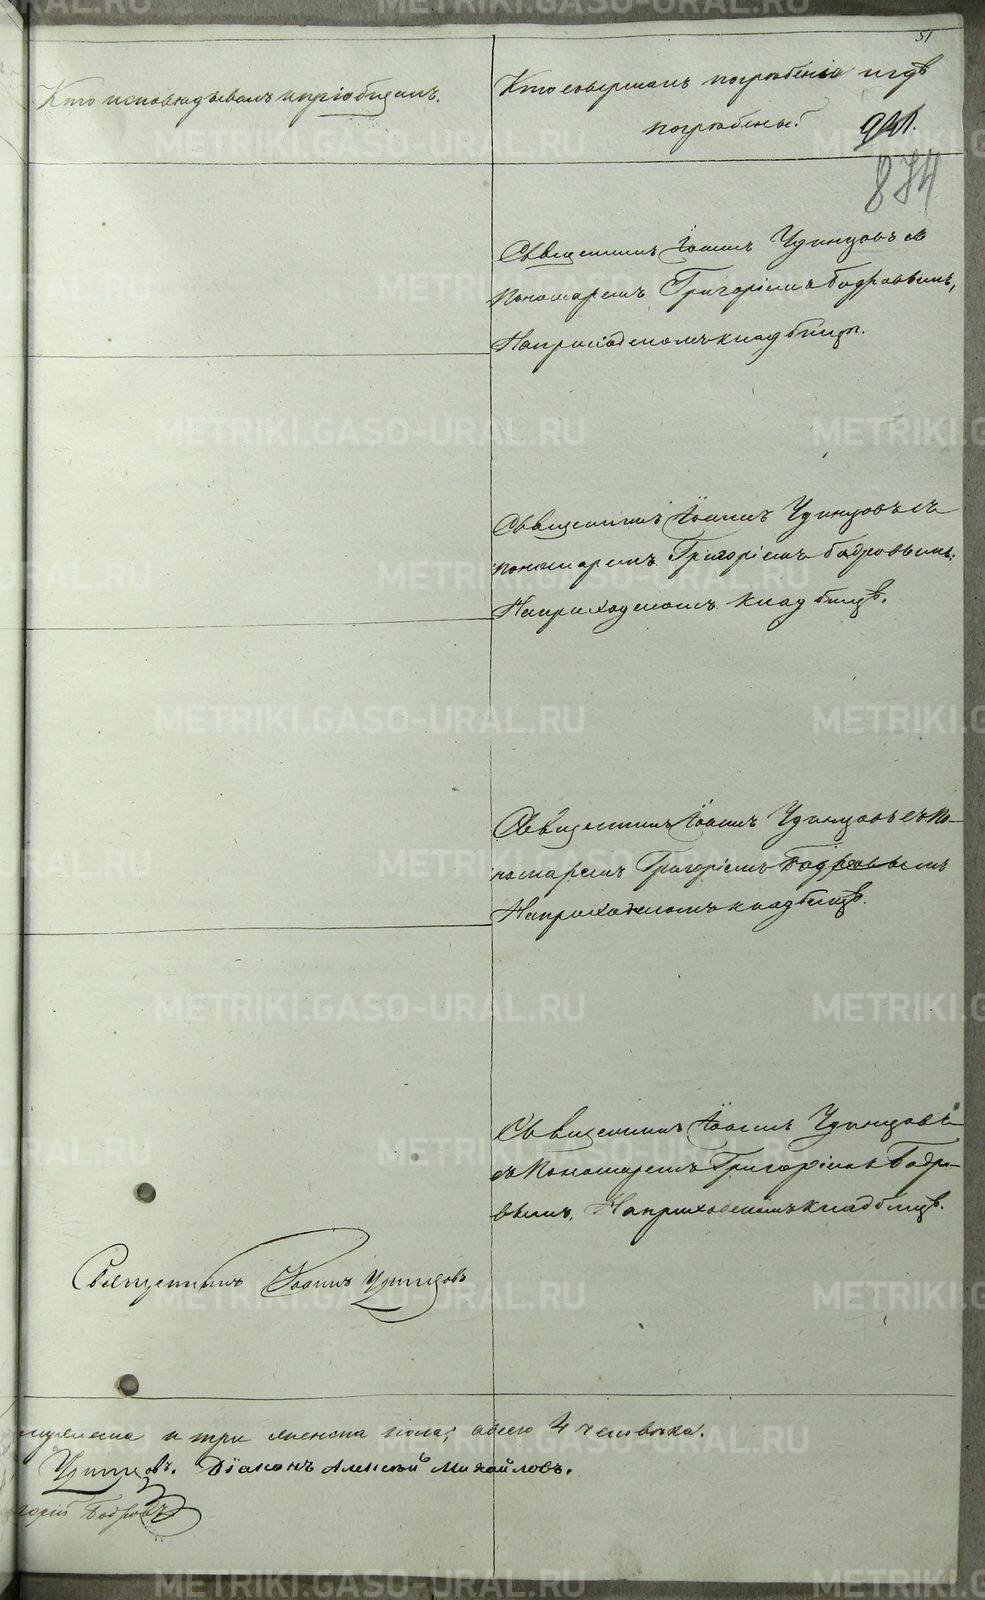 51
Кто исповѣдывалъ и пріобщалъ.
Кто совершалъ погребеніе и гдѣ
погребены?
941.
874
Священникъ Іоаннъ Удинцовъ съ
пономаремъ Григоріемъ Бодровымъ,
На приходскомъ кладбищѣ.
Священникъ Іоаннъ Удинцовъ съ
пономаремъ Григоріемъ Бодровымъ.
На приходскомъ кладбищѣ.
Священникъ Іоаннъ Удинцовъ съ по-
номаремъ Григоріемъ Бодровымъ
На приходскомъ кладбищѣ.
Священникъ Іоаннъ Удинцовъ
съ пономаремъ Григоріемъ Бодро-
вымъ. На приходскомъ кладбищѣ.
Священникъ Іоаннъ Удинцовъ
и три женска пола, всего 4 человѣка.
Удинцовъ. Діаконъ Алексѣй Михайловъ.
горій Бодровъ
METRIKI.GASO-URAL.RU